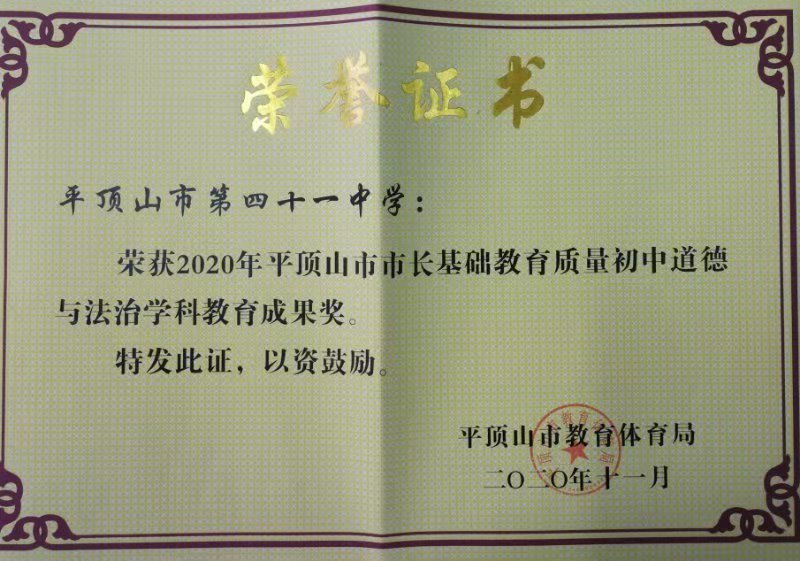 荣誉证书
平顶山市第四十一中学：
荣获2020年平顶山市市长基础教育质量初中道德
与法治学科教育成果奖。
特发此证，以资鼓励。
平顶山市教育体育局
二〇二〇年十一月